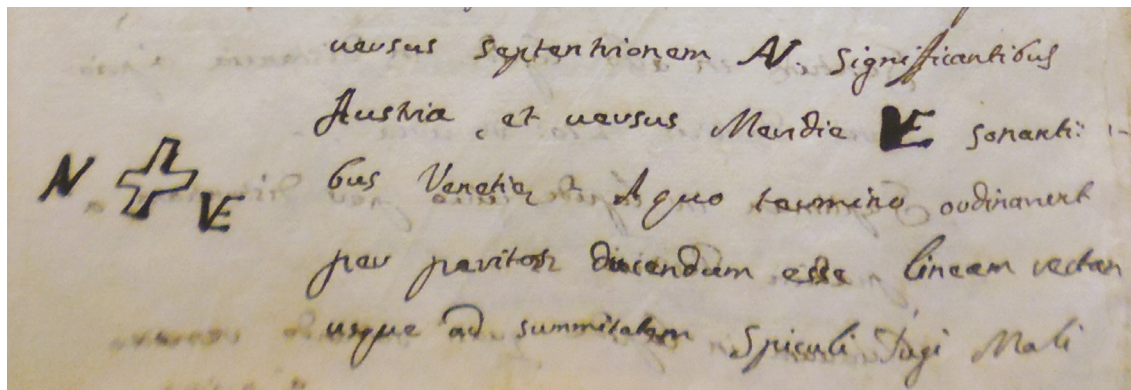 uersus septentrionem N. significantibus
Austria, et uersus Meridie VE sonanti:
N VE
bus Venetiar. A quo termino ordinauert
per peritos ducendam esse lineam rectam
usque ad summitatem Spiculi Iugi Mali